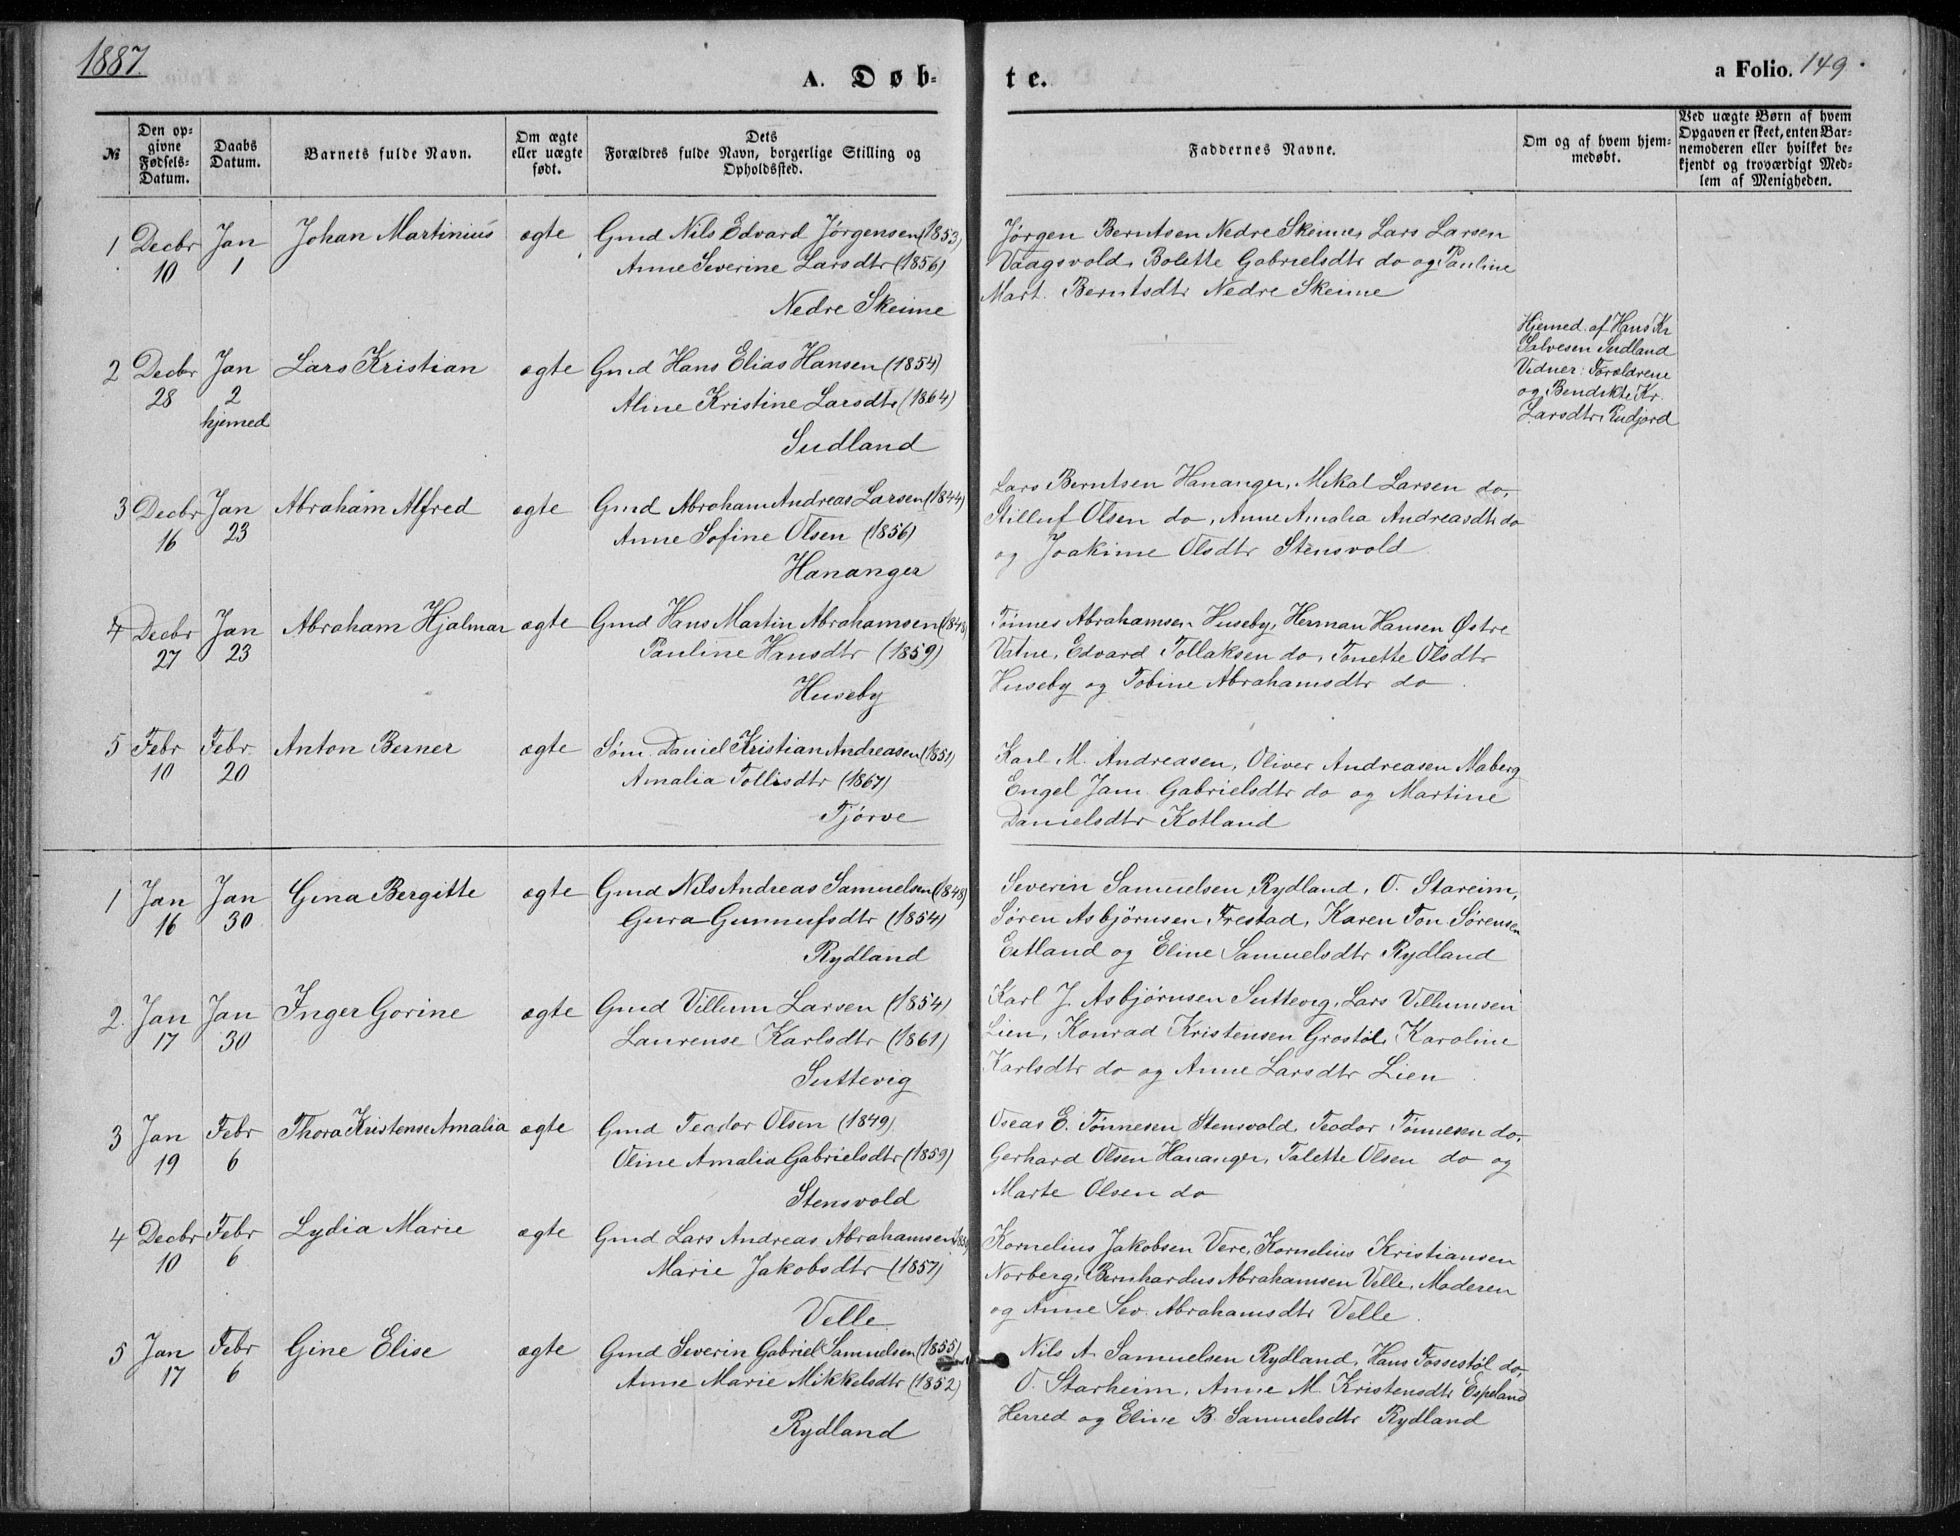 1887.
A. Døb-
te.
a Folio. 149.
№
Den op-
givne
Fødsels-
Datum.
Daabs
Datum.
Barnets fulde Navn.
Om ægte
eller uægte
født.
Dets
Forældres fulde Navn, borgerlige Stilling og
Opholdssted.
Faddernes Navne.
Om og af hvem hjem-
medøbt.
Ved uægte Børn af hvem
Opgaven er skeet, enten Bar-
nemoderen eller hvilket be-
kjendt og troværdigt Med-
lem af Menigheden.
1 Decbr 10 Jan 1 Johan Martinius ægte Gmd Nils Edvard Jørgensen (1853)
Anne Severine Larsdtr (1856)
Nedre Skeime
Jørgen Berntsen Nedre Skeime, Lars Larsen
Vaagsvold, Bolette Gabrielsdtr do og Pauline
Mart. Berntsdtr Nedre Skeime
2 Decbr 28 Jan 2 hjemed Lars Kristian ægte Gmd Hans Elias Hansen (1854)
Aline Kristine Larsdtr (1864)
Sudland
Hjemed. af Hans Kr
Salvesen Sudland
Vidner: Forældrene
og Bendikte Kr.
Larsdtr, Rudjord
3 Decbr 16 Jan 23 Abraham Alfred ægte Gmd Abraham Andreas Larsen (1844)
Anne Sofine Olsen (1856)
Hananger
Lars Berntsen Hananger, Mikal Larsen do,
Stilluf Olsen do, Anne Amalia Andreasdtr do
og Joakime Olsdtr Stensvold
4 Decbr 27 Jan 23 Abraham Hjalmar ægte Gmd Hans Martin Abrahamsen (1848)
Pauline Hansdtr (1859)
Huseby
Tønnes Abrahamsen Huseby, Herman Hansen Østre
Vatne, Edvard Tollaksen do, Tonette Olsdtr
Huseby og Tobine Abrahamsdtr do
5 Febr 10 Febr. 20 Anton Berner ægte Søm. Daniel Kristian Andreasen (1851)
Amalia Tollisdtr (1867)
Tjørve
Karl M. Andreasen, Oliver Andreasen Maberg
Engel Jam. Gabrielsdtr do og Martine
Danielsdtr Kotland
1 Jan 16 Jan 30 Gina Bergitte ægte Gmd Nils Andreas Samuelsen (1848)
Gura Gunnufsdtr (1854)
Rydland
Severin Samuelsen Rydland, O. Stareim,
Søren Asbjørnsen Frestad, Karen Ton. Sørensen
Eitland og Eline Samuelsdtr Rydland
2. Jan 17 Jan 30 Inger Gorine ægte Gmd Villum Larsen (1854)
Laurense Karlsdtr (1861)
Suttevig
Karl J. Asbjørnsen Suttevig, Lars Villumsen
Lien, Konrad Kristensen Grostøl, Karoline
Karlsdtr do og Anne Larsdtr Lien
3 Jan 19 Febr 6 Thora Kristense Amalia ægte Gmd Teodor Olsen (1849)
Oline Amalia Gabrielsdtr (1859)
Stensvold
Oseas E. Tønnesen Stensvold, Teodor Tønnesen do,
Gerhard Olsen Hananger, Talette Olsen do og
Marte Olsen do
4 Decbr 10 Febr 6 Lydia Marie ægte Gmd Lars Andreas Abrahamsen
Marie Jakobsdtr (1857)
Velle
Kornelius Jakobsen Vere, Kornelius Kristiansen
Norberg, Bernhardus Abrahamsen Velle, Moderen
og Anne Sev. Abrahamsdtr Velle.
5 Jan 17 Febr 6 Gine Elise ægte Gmd Severin Gabriel Samuelsen (1855)
Anne Marie Mikkelsdtr (1852)
Rydland
Nils A. Samuelsen Rydland, Hans Fossestøl do,
O. Starheim, Anne M. Kristensdtr Espeland
Herred og Eline B. Samuelsdtr Rydland